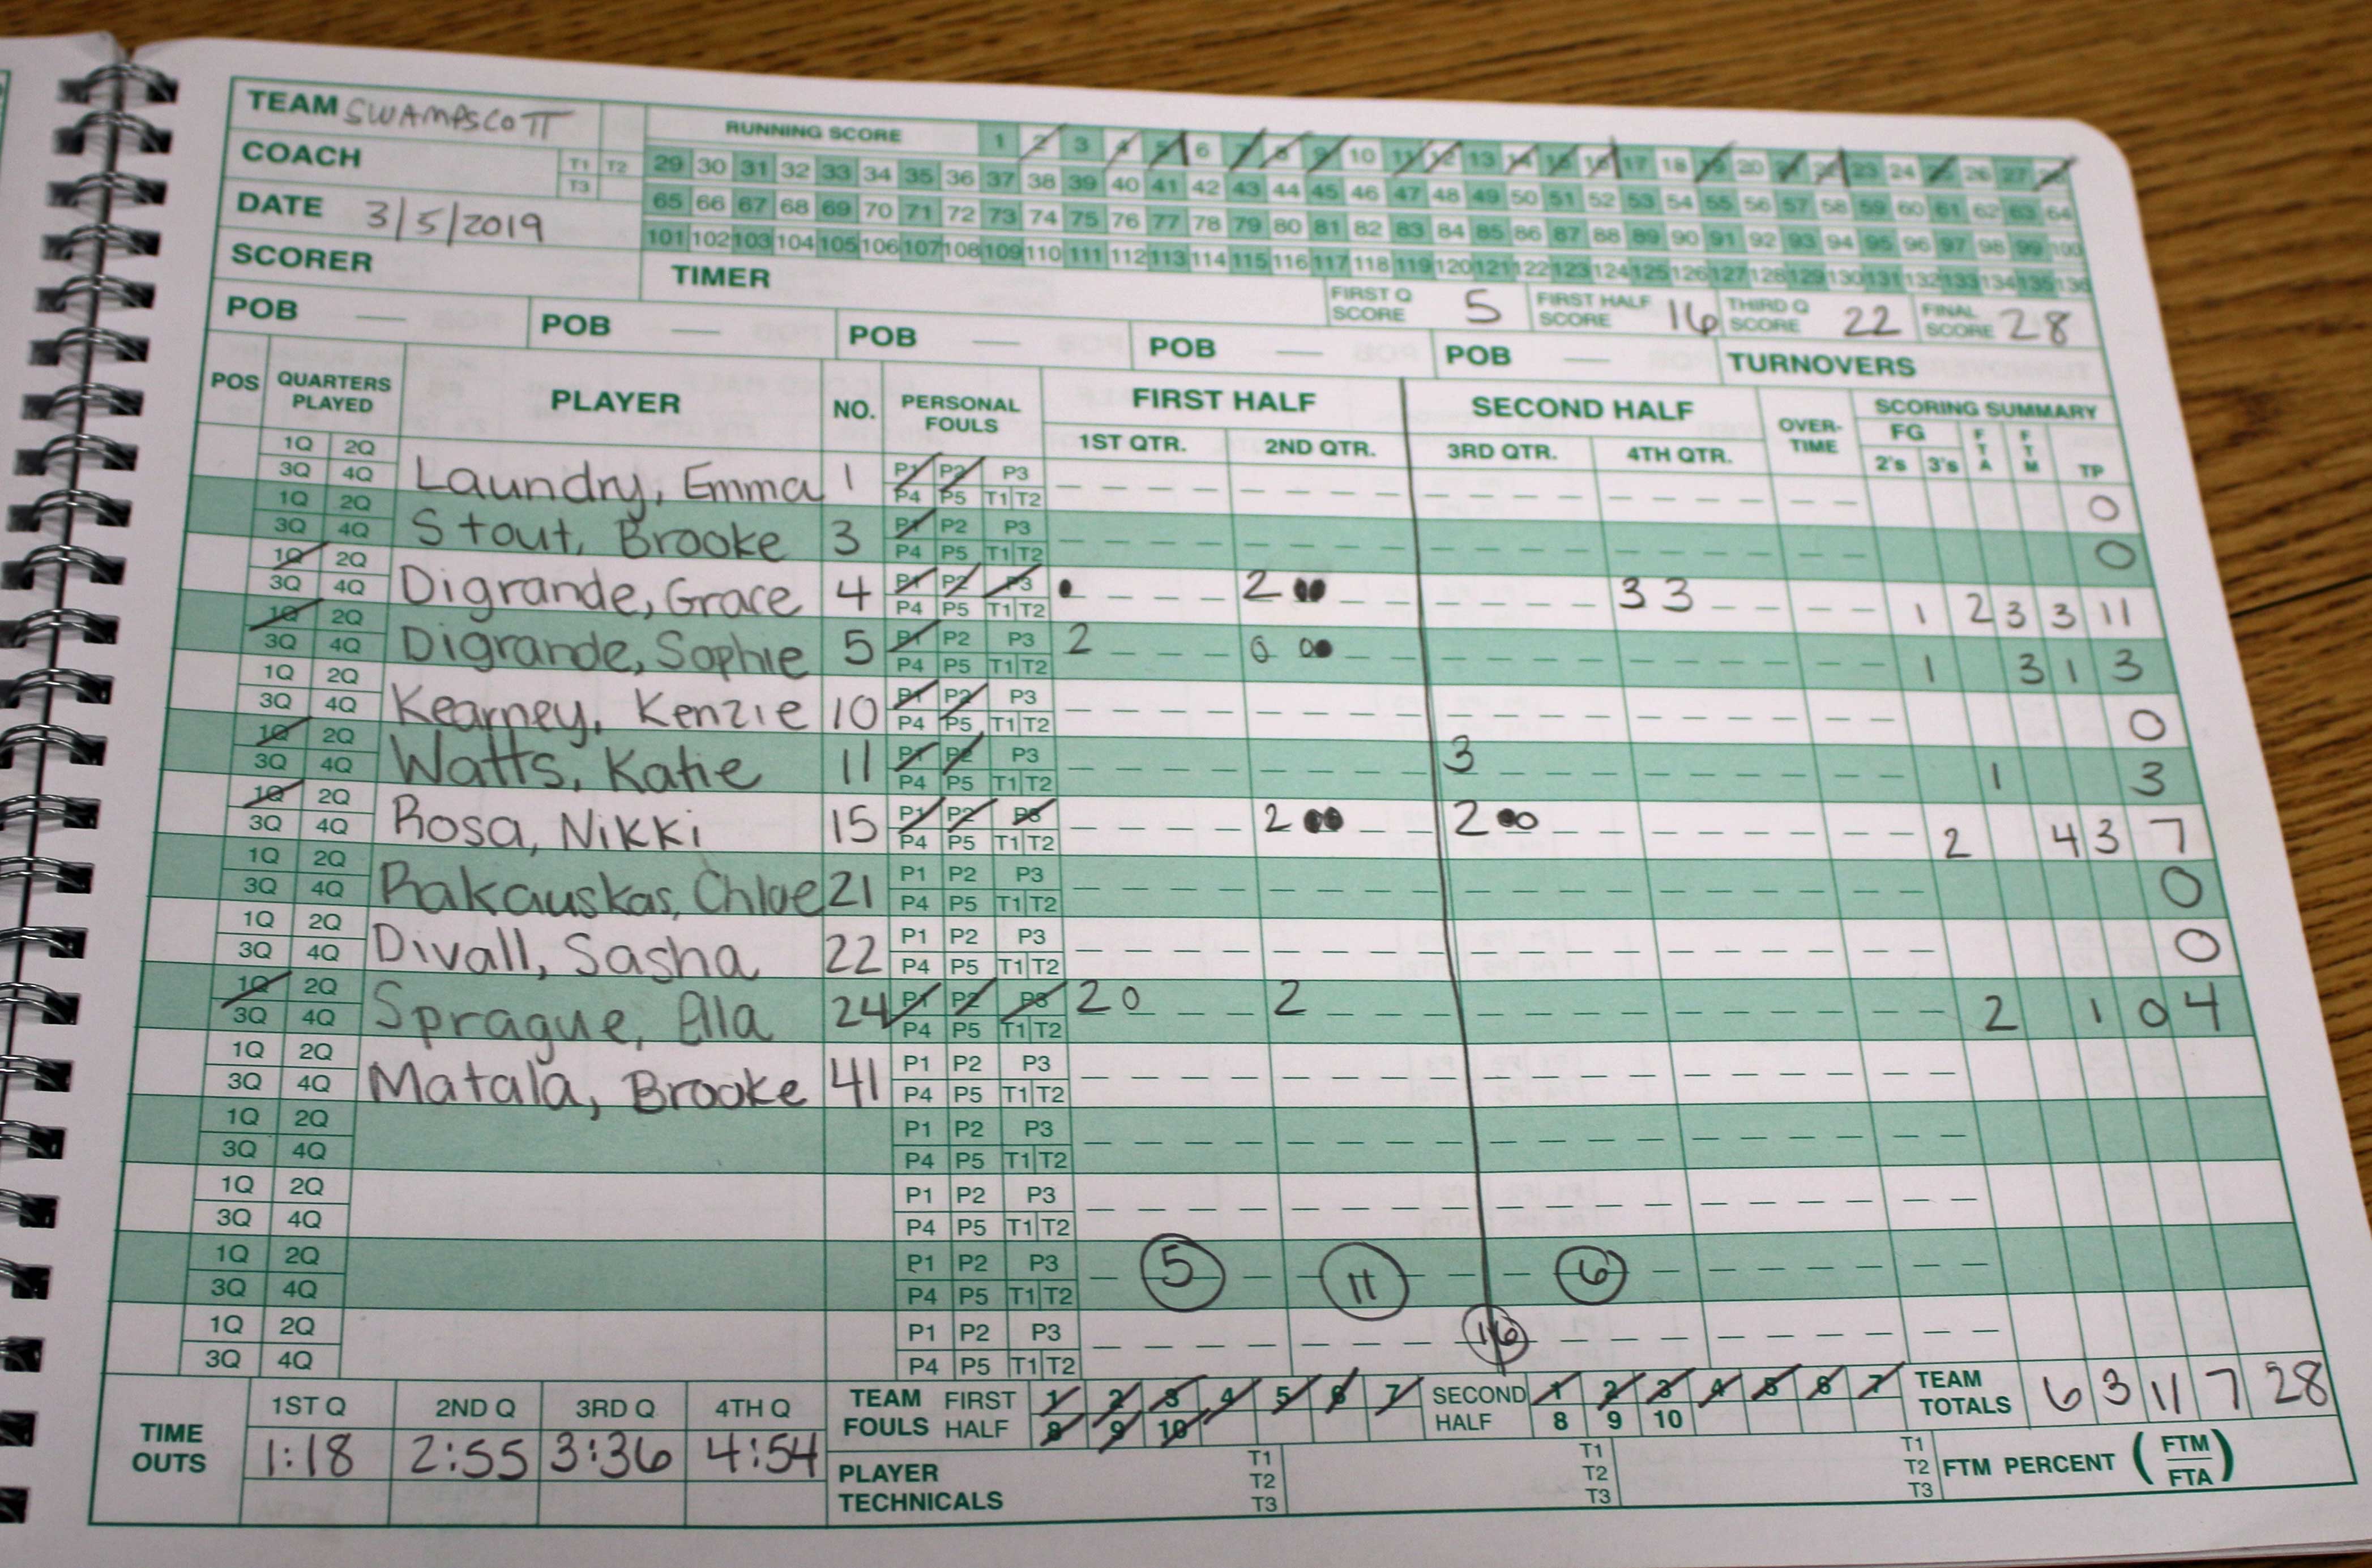 TEAM SWAMPSCOTT
RUNNING SCORE 1 2 3 4 5 6 7 8 9 10 11 12 13 14 15 16 17 18 19 20 21 22 23 24 25 26 27 28
COACH T1 T2 T3
29 30 31 32 33 34 35 36 37 38 39 40 41 42 43 44 45 46 47 48 49 50 51 52 53 54 55 56 57 58 59 60 61 62 63 64
DATE 3/5/2019
65 66 67 68 69 70 71 72 73 74 75 76 77 78 79 80 81 82 83 84 85 86 87 88 89 90 91 92 93 94 95 96 97 98 99 100
101 102 103 104 105 106 107 108 109 110 111 112 113 114 115 116 117 118 119 120 121 122 123 124 125 126 127 128 129 130 131 132 133 134 135 136
SCORER TIMER
FIRST Q SCORE 5 FIRST HALF SCORE 16 THIRD Q SCORE 22 FINAL SCORE 28
POB — POB — POB — POB — POB — TURNOVERS
POS QUARTERS PLAYED PLAYER NO. PERSONAL FOULS FIRST HALF SECOND HALF OVER-TIME SCORING SUMMARY
1ST QTR. 2ND QTR. 3RD QTR. 4TH QTR. FG 2's 3's FTA FTM TP
1Q 2Q 3Q 4Q Laundry, Emma 1 P1 P2 P3 P4 P5 T1 T2 0
1Q 2Q 3Q 4Q Stout, Brooke 3 P1 P2 P3 P4 P5 T1 T2 0
1Q 2Q 3Q 4Q Digrande, Grace 4 P1 P2 P3 P4 P5 T1 T2 2 3 3 1 2 3 3 11
1Q 2Q 3Q 4Q Digrande, Sophie 5 P1 P2 P3 P4 P5 T1 T2 2 0 0 1 3 1 3
1Q 2Q 3Q 4Q Kearney, Kenzie 10 P1 P2 P3 P4 P5 T1 T2 0
1Q 2Q 3Q 4Q Watts, Katie 11 P1 P2 P3 P4 P5 T1 T2 3 1 3
1Q 2Q 3Q 4Q Rosa, Nikki 15 P1 P2 P3 P4 P5 T1 T2 2 2 0 2 4 3 7
1Q 2Q 3Q 4Q Rakauskas, Chloe 21 P1 P2 P3 P4 P5 T1 T2 0
1Q 2Q 3Q 4Q Divall, Sasha 22 P1 P2 P3 P4 P5 T1 T2 0
1Q 2Q 3Q 4Q Sprague, Ella 24 P1 P2 P3 P4 P5 T1 T2 2 0 2 2 1 0 4
1Q 2Q 3Q 4Q Matala, Brooke 41 P1 P2 P3 P4 P5 T1 T2
1Q 2Q 3Q 4Q P1 P2 P3 P4 P5 T1 T2
1Q 2Q 3Q 4Q P1 P2 P3 P4 P5 T1 T2
1Q 2Q 3Q 4Q P1 P2 P3 P4 P5 T1 T2 5 11 6
1Q 2Q 3Q 4Q P1 P2 P3 P4 P5 T1 T2 16
TIME OUTS 1ST Q 2ND Q 3RD Q 4TH Q
1:18 2:55 3:36 4:54
TEAM FOULS FIRST HALF 1 2 3 4 5 6 7 8 9 10 SECOND HALF 1 2 3 4 5 6 7 8 9 10
TEAM TOTALS 6 3 11 7 28
PLAYER TECHNICALS T1 T2 T3 T1 T2 T3 T1 T2 T3
FTM PERCENT (FTM/FTA)